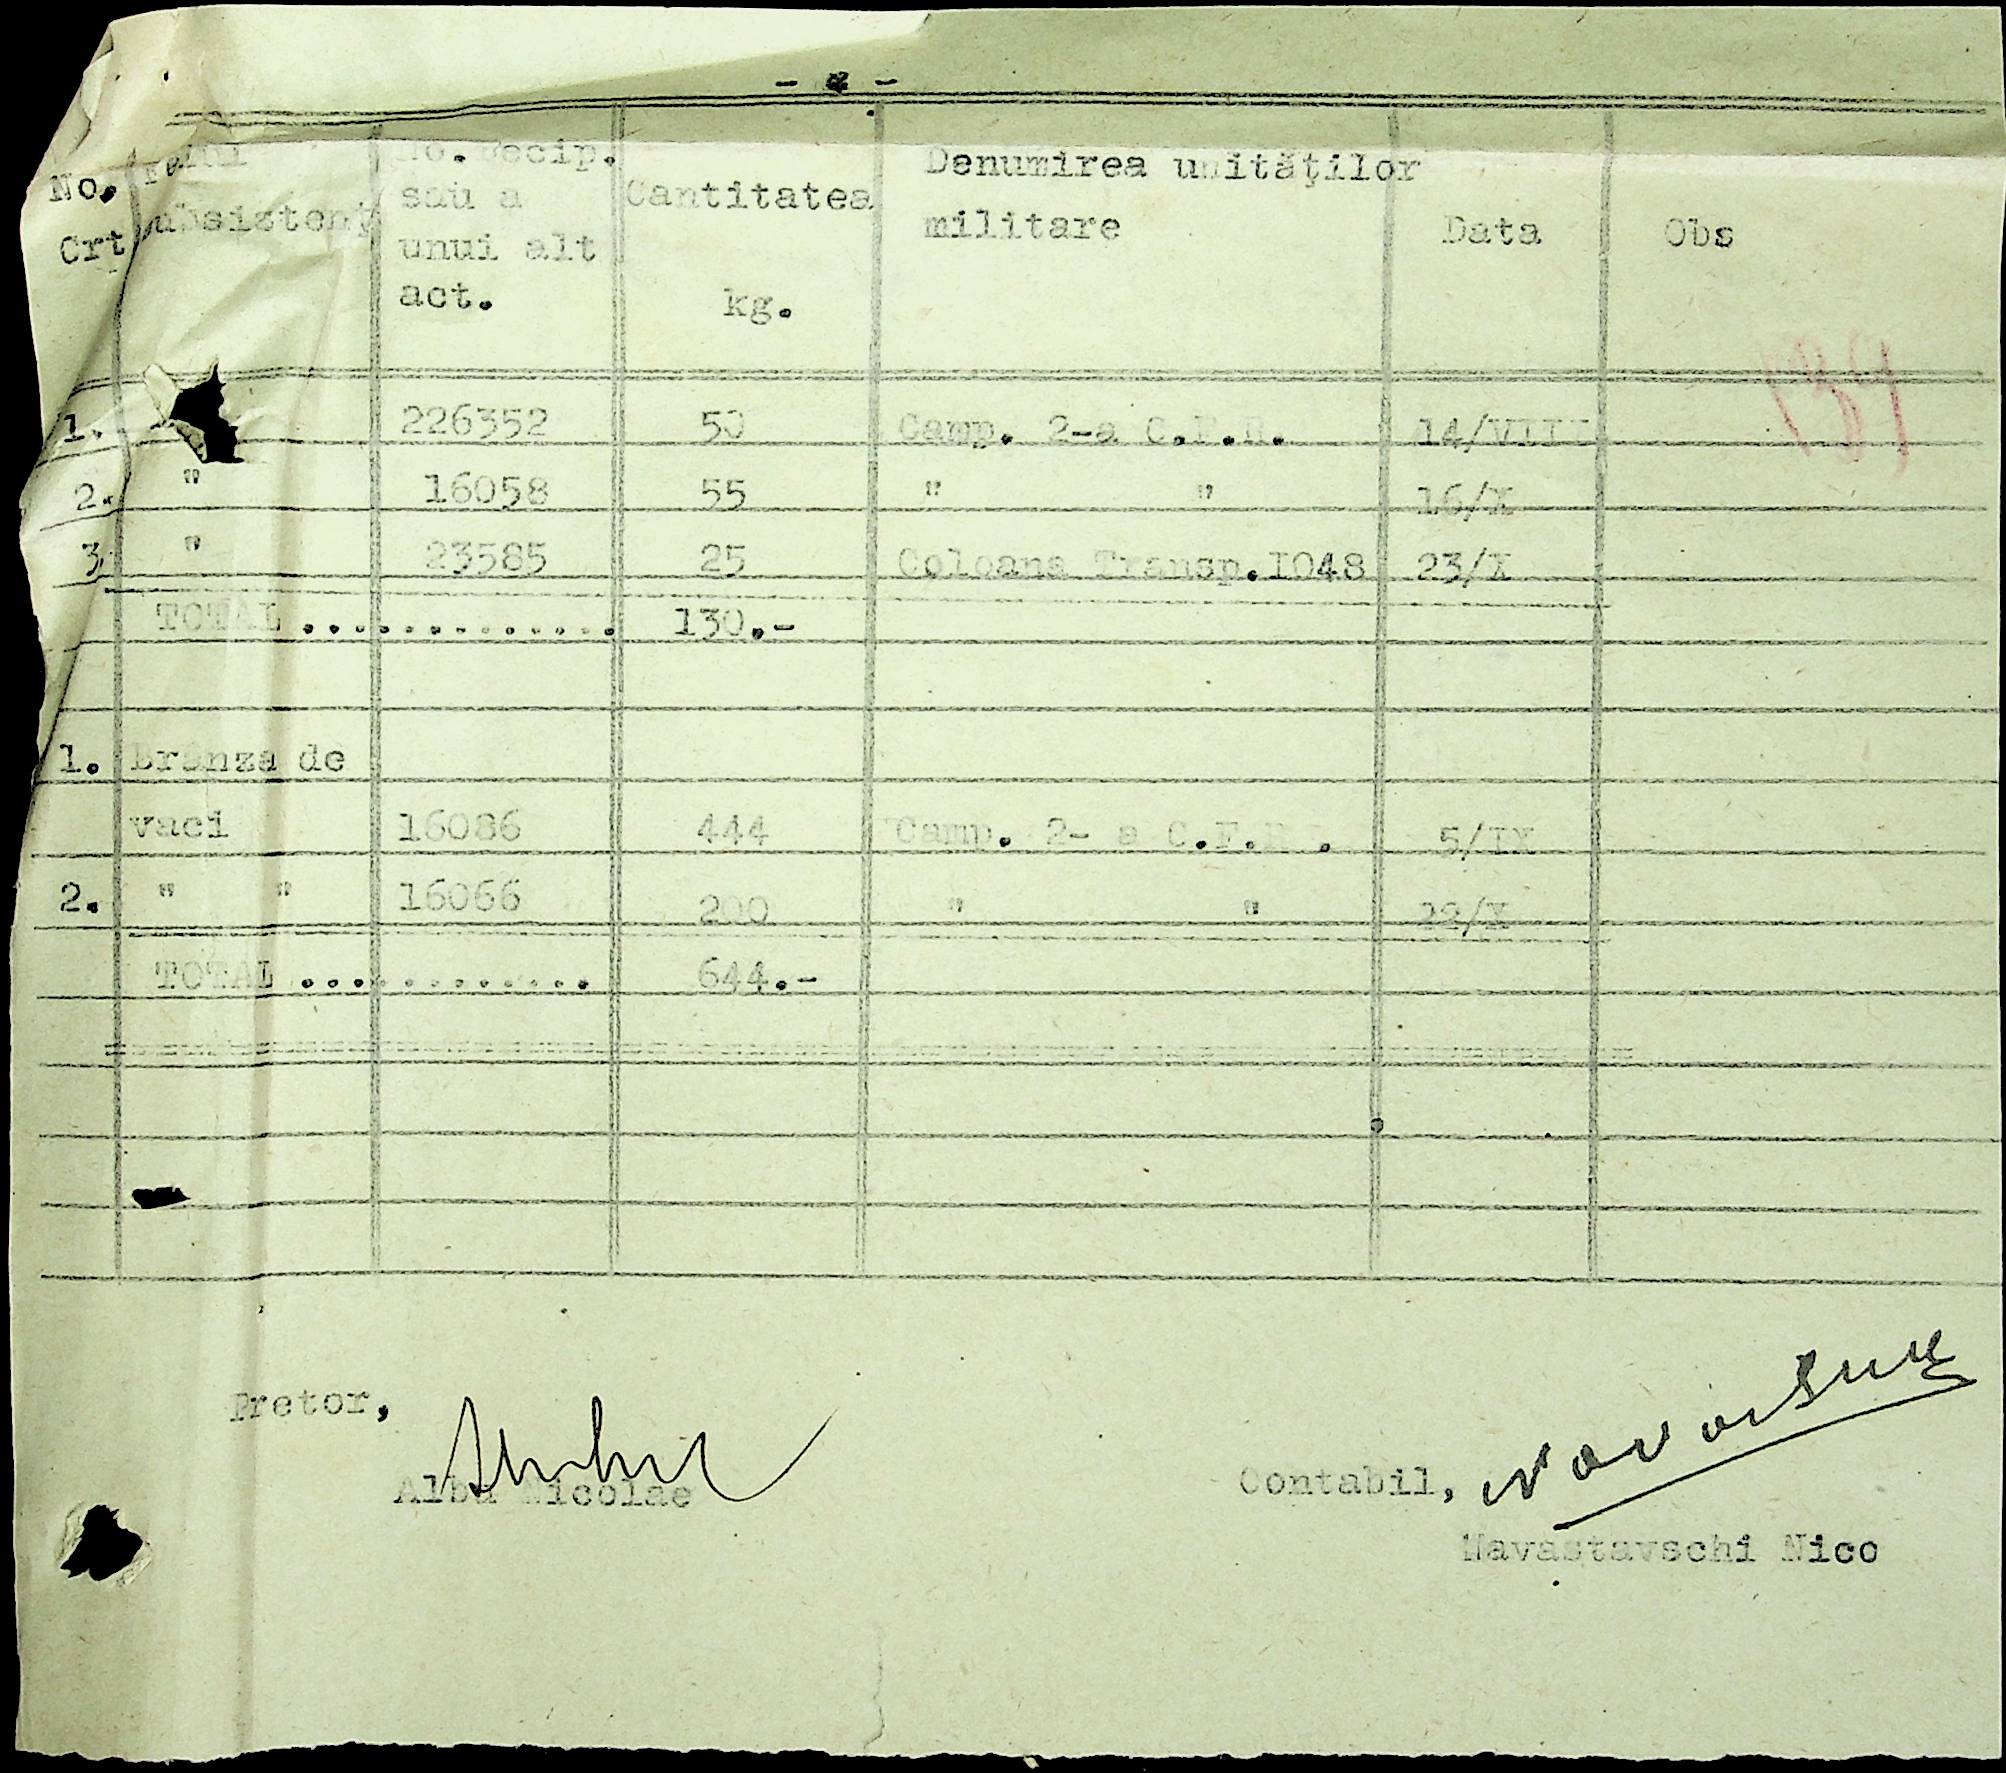 No. Crt | Felul subsistenţ | No. Recip. sau a unui alt act. | Cantitatea kg. | Denumirea unităţilor militare | Data | Obs
1. | 226352 | 50 | Camp. 2-a C.F.R. | 14/VIII
2. | " | 16058 | 55 | " " | 16/X
3. | " | 23585 | 25 | Coloana Transp.1048 | 23/X
TOTAL ............. 130.-
1. Brânza de
vaci | 16086 | 444 | Camp. 2- a C.F.R . | 5/IX
2. | " " | 16066 | 200 | " " | 22/X
TOTAL ............ 644.-
Pretor,
Albu Nicolae
Contabil,
Navastavschi Nico